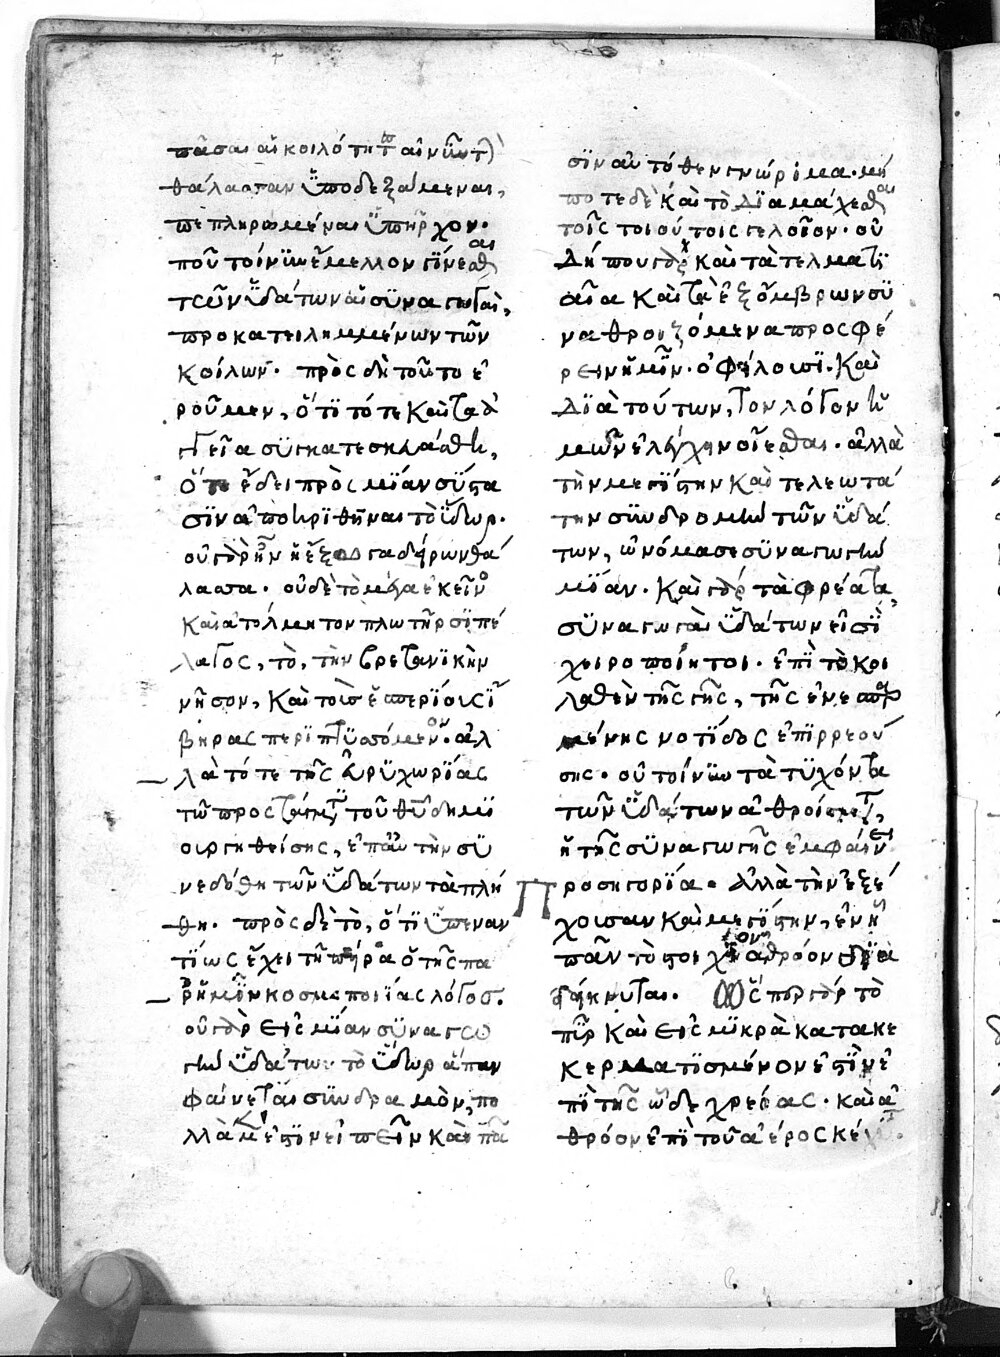 πᾶσαι αἱ κοιλότητες αἱ νῦν τὴν
θάλασσαν ὑποδεξάμεναι,
πεπληρωμέναι ὑπῆρχον.
ποῦ τοίνυν ἔμελλον γίνεσθαι
τῶν ὑδάτων αἱ συναγωγαὶ,
προκατειλημμένων τῶν
κοίλων. πρὸς δὴ τοῦτο ἐ
ροῦμεν, ὅτι τότε καὶ τὰ ἀγ
γεῖα συγκατεσκευάσθη,
ὅτε ἔδει πρὸς μίαν σύστα
σιν ἀποκριθῆναι τὸ ὕδωρ.
οὐ γὰρ ἦν ἡ ἔξω γαδήρων θά
λασσα. οὐδὲ τὸ μέγα ἐκεῖνο
καὶ ἀτόλμητον πλωτῆρσι πέ
λαγος, τὸ, τὴν βρετανικὴν
νῆσον, καὶ τοὺς ἑσπερίους ἴ
βηρας περιπτυσσόμενον. ἀλ
λὰ τότε τῆς εὐρυχωρίας
τῷ προστάγματι τοῦ θεοῦ δημι
ουργηθείσης, ἐπ' αὐτὴν συ
νεδόθη τῶν ὑδάτων τὰ πλή
θη. πρὸς δὲ τὸ, ὅτι ὑπεναν
τίως ἔχει τῇ πείρᾳ ὁ τῆς πα
ρ' ἡμῖν κοσμοποιίας λόγος.
οὐ γὰρ εἰς μίαν συναγω
γὴν ὑδάτων τὸ ὕδωρ ἅπαν
φαίνεται συνδραμὸν, πο
λλὰ μέν ἐστιν εἰπεῖν καὶ πᾶ
σιν αὐτόθεν γνώριμα. μή
ποτε δὲ καὶ τὸ διαμάχεσθαι
τοῖς τοιούτοις γελοῖον. οὐ
δήπου γὰρ καὶ τὰ τελματι
αῖα καὶ τὰ ἐξ ὄμβρων συ
ναθροιζόμενα προσφέ
ρειν ἡμῖν ὀφείλουσι. καὶ
διὰ τούτων, τὸν λόγον ἡ
μῶν ἐλέγχειν οἴεσθαι. ἀλλὰ
τὴν μεγίστην καὶ τελεωτά
την συνδρομὴν τῶν ὑδά
των, ὠνόμασε συναγωγὴν
μίαν. καὶ γὰρ τὰ φρέατα,
συναγωγαὶ ὑδάτων εἰσὶ
χειροποίητοι. ἐπὶ τὸ κοι
λαθὲν τῆς γῆς, τῆς ἐνεσπαρ
μένης νοτίδος ἐπιρρεού
σης. οὐ τοίνυν τὰ τυχόντα
τῶν ὑδάτων ἀθροίσματα,
ἡ τῆς συναγωγῆς ἐμφαίνει
προσηγορία. ἀλλὰ τὴν ἐξέ
χουσαν καὶ μεγίστην, ἐν ᾗ
πᾶν τὸ στοιχεῖον ἀθρόον ὂν δια
δείκνυται. ὥσπερ γὰρ τὸ
πῦρ καὶ εἰς μικρὰ κατακε
κερματισμένον ἐστὶν ἐ
πὶ τῆς ὧδε χρείας. καὶ ἀ
θρόον ἐπὶ τοῦ αἰέρος κέ